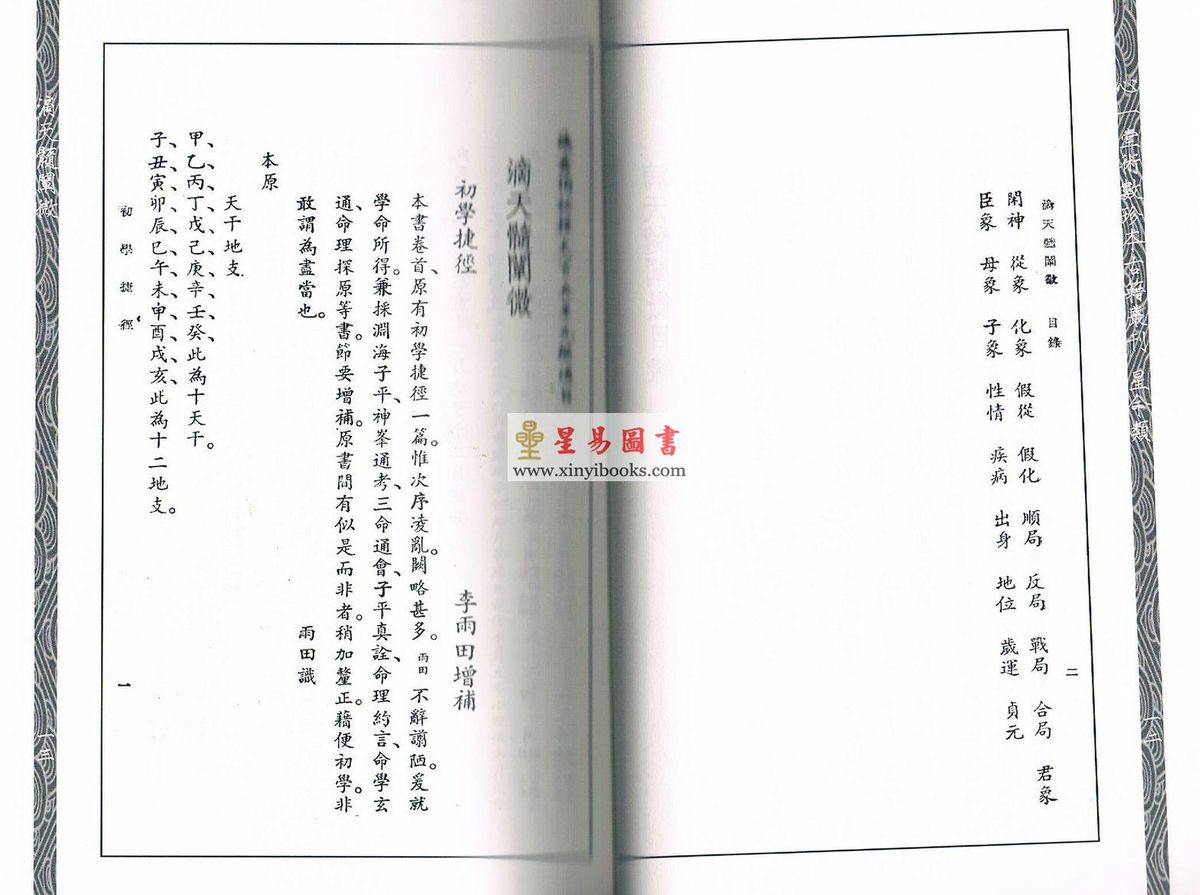 心一堂術數珍本古籍叢刊 星命類
一二
滴天髓闡微 目錄
二
閑神 從象 化象 假從 假化 順局 反局 戰局 合局 君象
臣象 母象 子象 性情 疾病 出身 地位 歲運 貞元
滴天髓闡微
初學捷徑 李雨田增補
本書卷首、原有初學捷徑一篇。惟次序凌亂。闕略甚多。雨田不辭謭陋。爰就
學命所得。兼採淵海子平、神峯通考、三命通會、子平真詮、命理約言、命學玄
通、命理探原等書。節要增補。原書間有似是而非者。稍加釐正。藉便初學。非
敢謂為盡當也。 雨田識
本原
天干地支
甲、乙、丙、丁、戊、己、庚、辛、壬、癸、此為十天干。
子、丑、寅、卯、辰、巳、午、未、申、酉、戌、亥、此為十二地支。
初學捷徑
一
滴天髓闡微
一三
星易圖書
www.xinyibooks.com